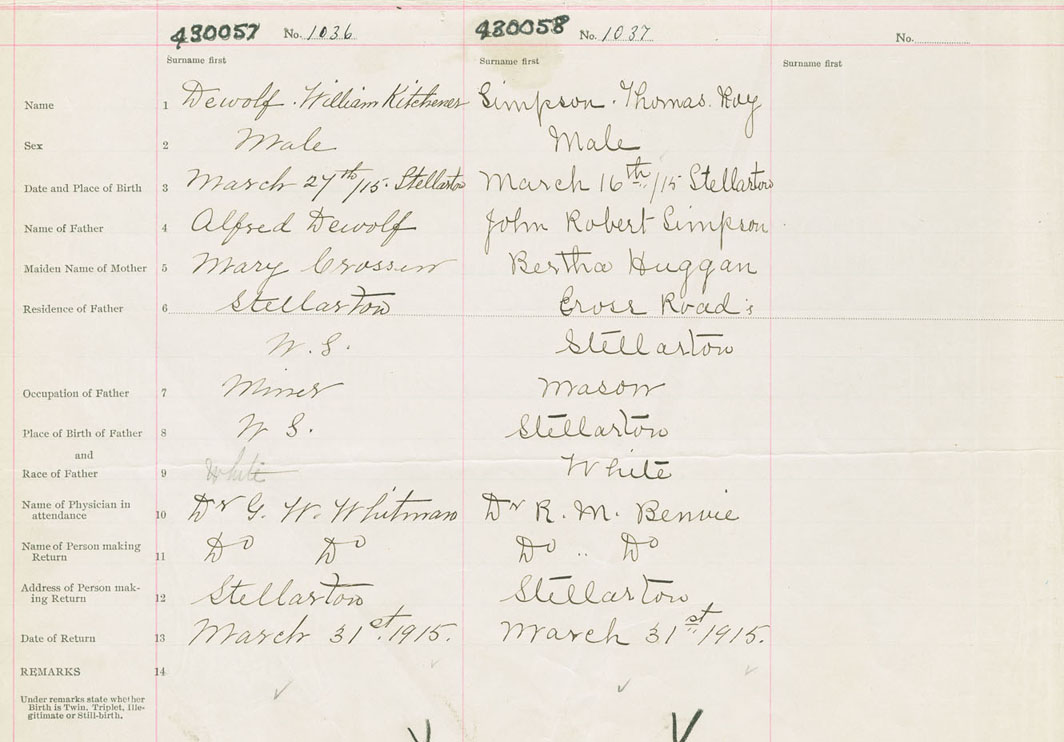 430057 No. 1036 430058 No. 1037 No.
Surname first Surname first Surname first
Name 1 Dewolf. William Kitchener Simpson. Thomas. Roy
Sex 2 Male Male
Date and Place of Birth 3 March 27th/15. Stellarton March 16th/15 Stellarton
Name of Father 4 Alfred Dewolf John Robert Simpson
Maiden Name of Mother 5 Mary Crossen Bertha Huggan
Residence of Father 6 Stellarton Cross Road's
N.S. Stellarton
Occupation of Father 7 Miner Mason
Place of Birth of Father 8 N S. Stellarton
and
Race of Father 9 White White
Name of Physician in
attendance 10 Dr G. W. Whitman Dr R. M. Benvie
Name of Person making
Return 11 Do Do Do .. Do
Address of Person mak-
ing Return 12 Stellarton Stellarton
Date of Return 13 March 31st. 1915. March 31st 1915.
REMARKS 14
Under remarks state whether
Birth is Twin, Triplet, Ille-
gitimate or Still-birth.